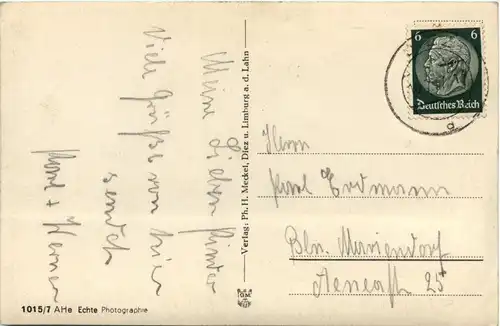 Meine Lieben Kinder
Viele Grüße von hier
sendet
+ Werner
Verlag: Ph. H. Meckel, Diez u. Limburg a. d. Lahn
1015/7 AHe Echte Photographie
6 6
Deutsches Reich
Herrn
Karl Erdmann
Bln. Mariendorf
25